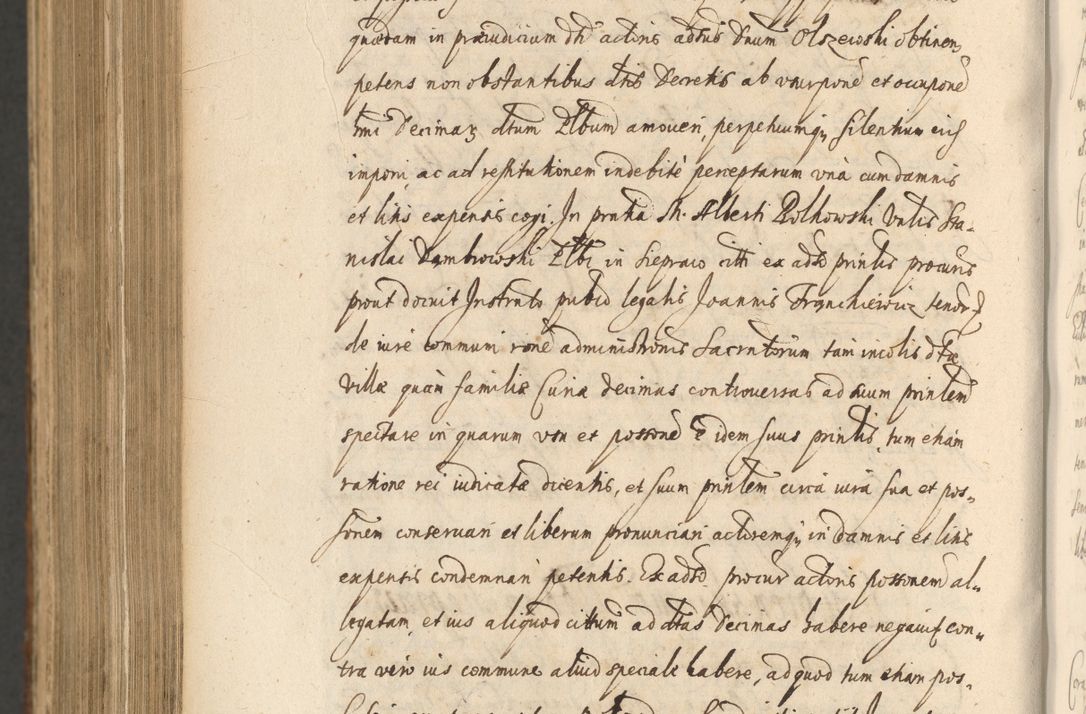 quædam in præiudicium dti actoris adsus Dnum Olszewski obtinen,
petens non obstantibus dtis Decretis ab vsurpone et occupone
tmi Decimaz dtum Plbum amoveri, perpetuumq, silentium eis
imponi, ac ad restitutionem indebitè perceptarum vnà cum damnis
et litis expensis cogi. In pntia Sh. Alberti Polkowski Vnlis Sta-
nislai Dąmbrowski Plbi in Siepraw citti ex adso printis procuris
prout docuit Instrnto pubco legalis Joannis Frąnckiewicz tenor
de iure communi rone administronis Sacrntorum tam incolis dtæ
Villæ quàm familiæ Curiæ decimas controuersas ad suum printem
spectare in quarum vsu et possone e idem suus printis, tum etiam
ratione rei iudicatæ dicentis, et suum printem circa iura sua et pos-
sonem conseruari et liberum pronunciari actoremq, in damnis et litis
expensis condemnari petentis. Ex adso procur actoris possonem al-
legatam, et ius aliquod cittum ad dtas Decimas habere negauit con-
tra vero ius commune aliud speciale habere, ad quod tum etiam pos-